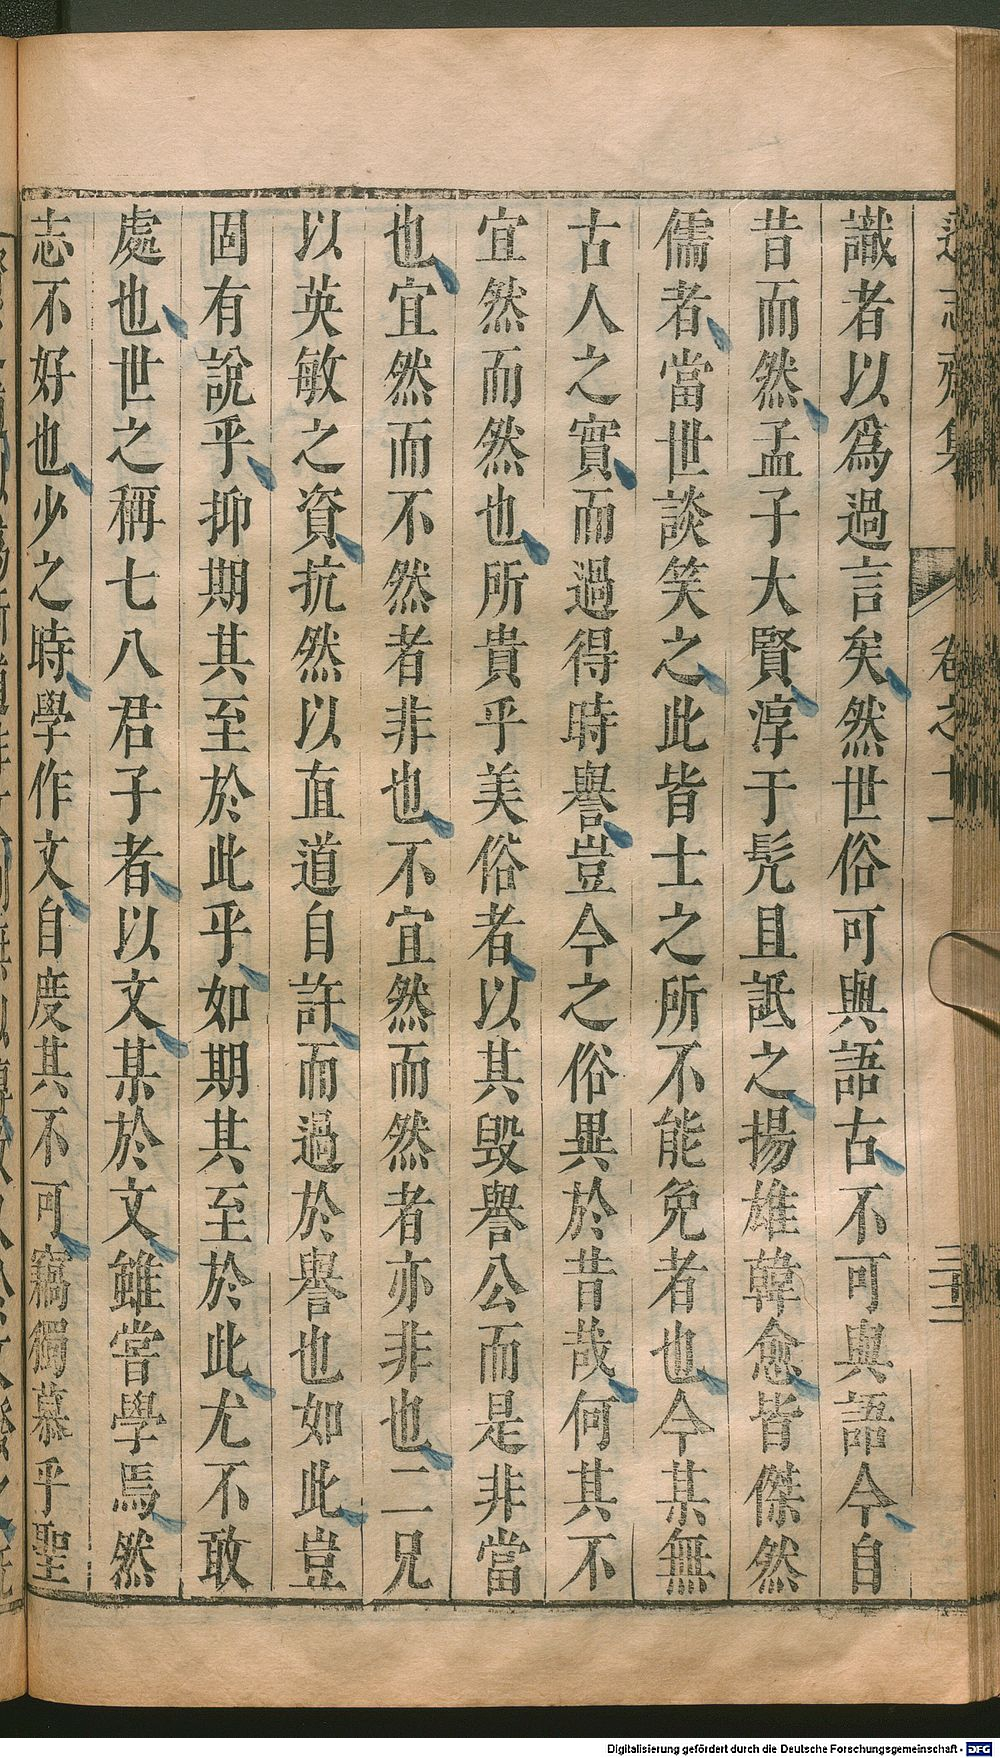 遜志齋集 卷之十一 三十二
識者以爲過言矣然世俗可與語古不可與語今自
昔而然孟子大賢淳于髠且詆之揚雄韓愈皆傑然
儒者當世談笑之此皆士之所不能免者也今某無
古人之實而過得時譽豈今之俗異於昔哉何其不
宜然而然也所貴乎美俗者以其毀譽公而是非當
也宜然而不然者非也不宜然而然者亦非也二兄
以英敏之資抗然以直道自許而過於譽也如此豈
固有說乎抑期其至於此乎如期其至於此尤不敢
處也世之稱七八君子者以文某於文雖嘗學焉然
志不好也少之時學作文自度其不可竊獨慕乎聖
Digitalisierung gefördert durch die Deutsche Forschungsgemeinschaft - DFG